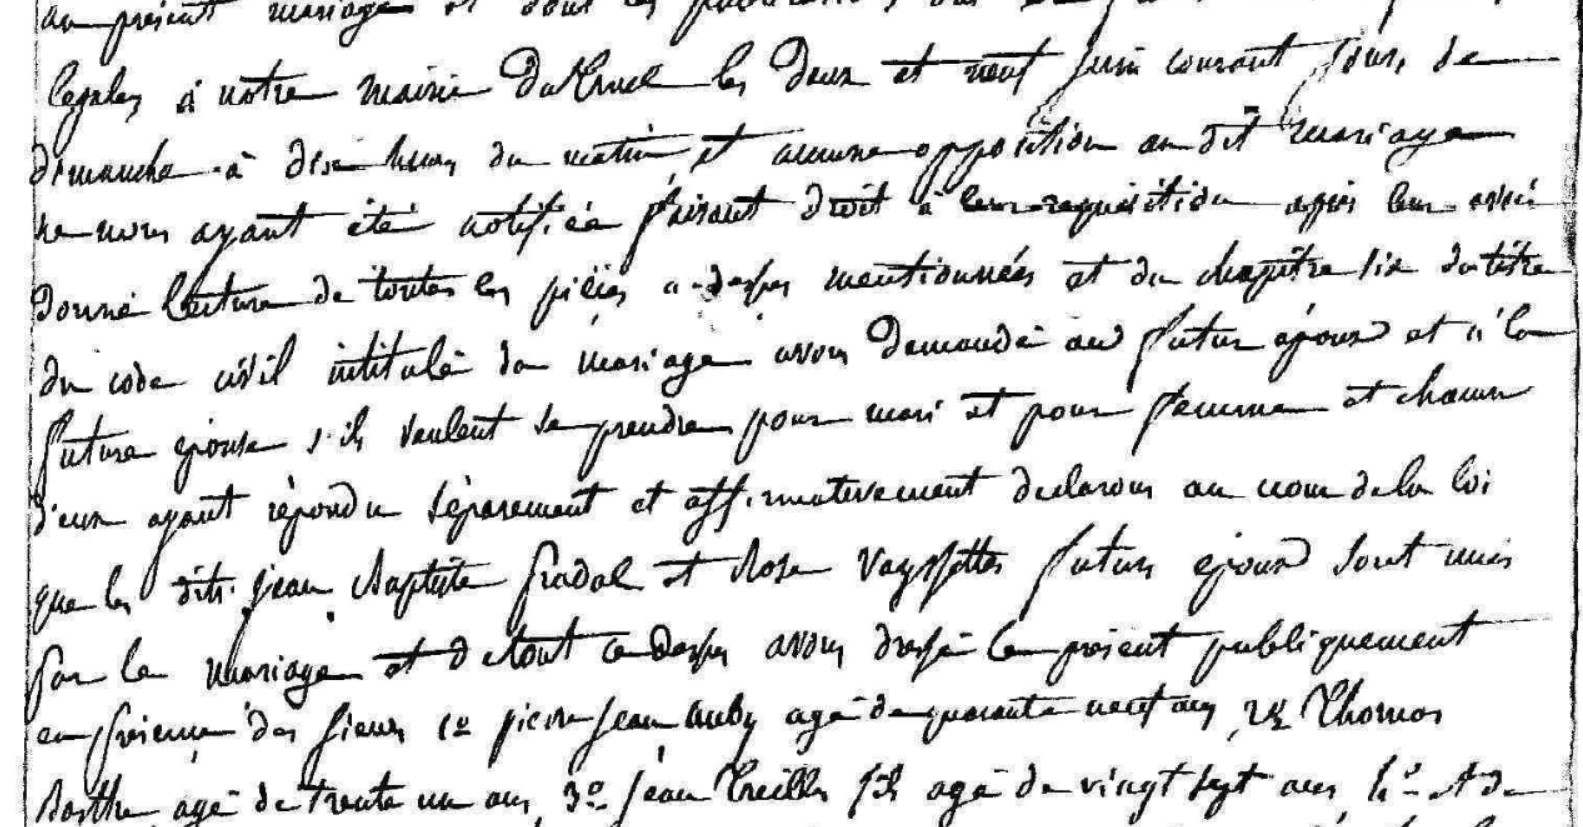 au présent mariage et dont les publications
légales à notre mairie du Truel les deux et neuf juin courant jours de
dimanche à dix heures du matin et aucune opposition au dit mariage
ne nous ayant été notifiée faisant droit à leur requisition après leur avoir
donné lecture de toutes les pièces a-dessus mentionnées et du chapitre six du titre
du code civil intitulé du mariage avons demandé au futur époux et à la
future epouse s'ils veulent se prendre pour mari et pour femme et chacun
d'eux ayant répondu séparement et affirmativement declarons au nom de la loi
que les dits jean Baptiste Gradal et Rose Vayssettes futurs epoux sont unis
par le mariage et de tout ce dessus avons dressé le présent publiquement
en présence des sieurs 1º pierre jean Auby agé de quarante neuf ans 2º Thomas
Barthe agé de trente un ans 3º jean Treilles fils agé de vingt sept ans 4º et de